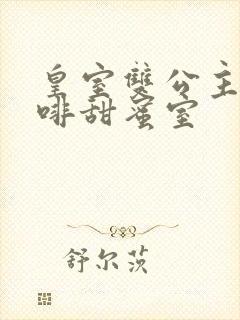 皇室雙公主
啡甜蜜室
舒尔茨